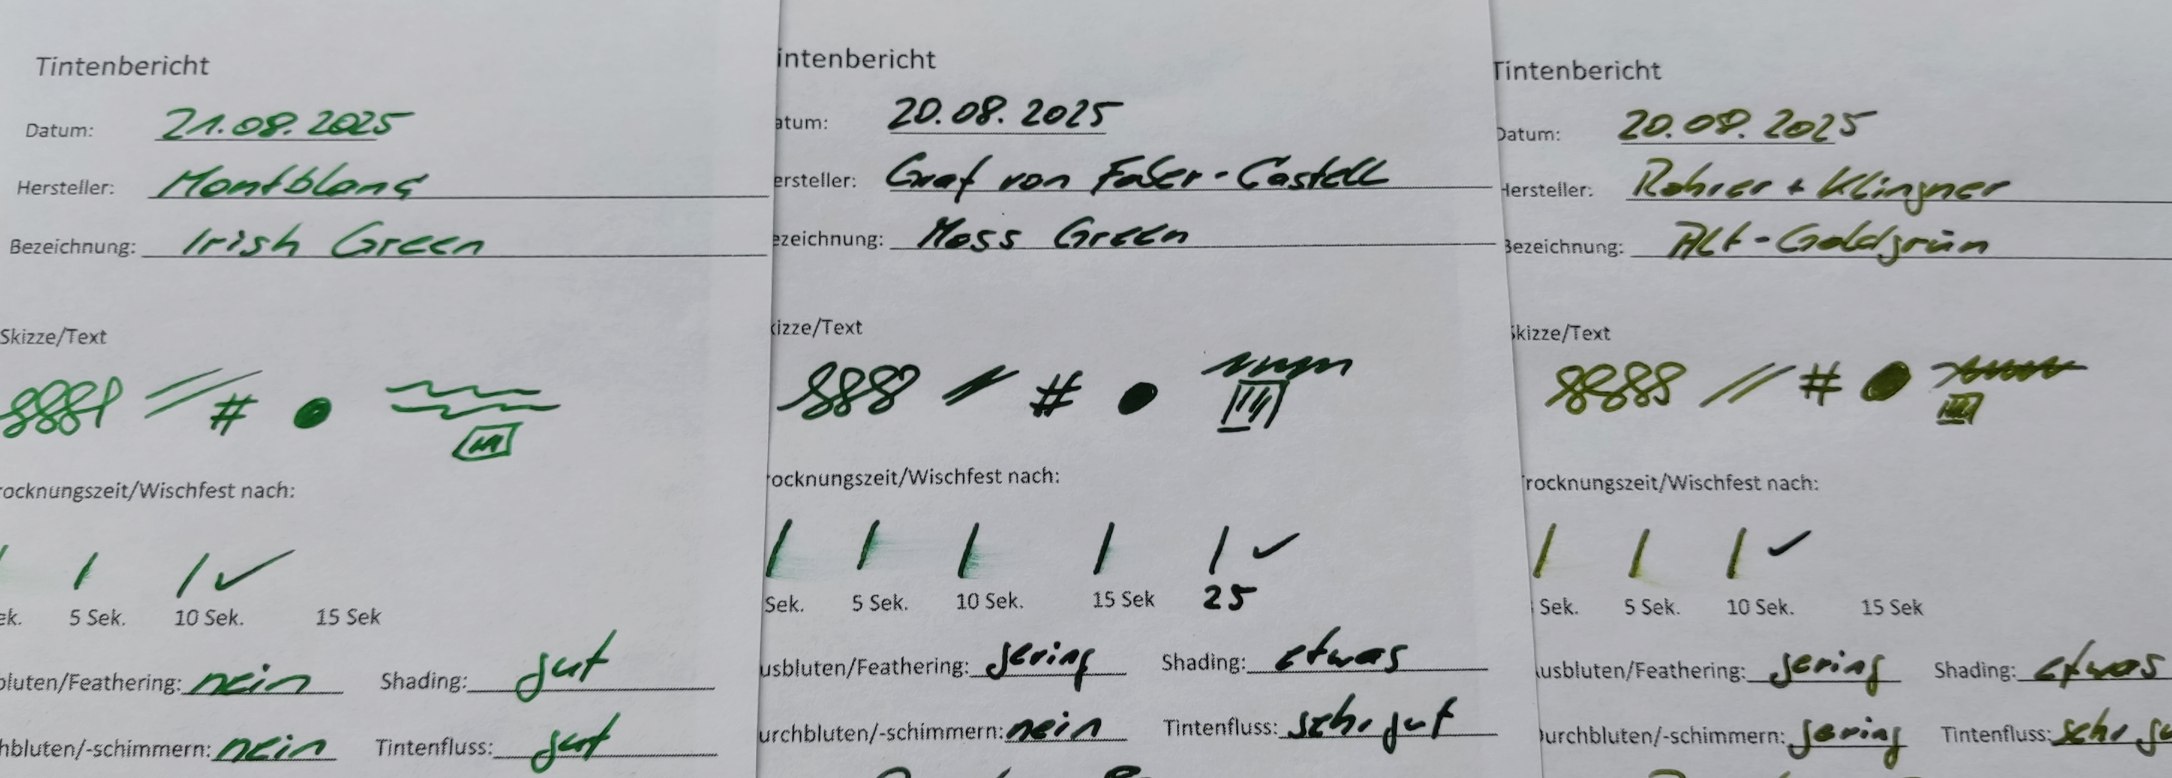 Tintenbericht
Datum: 21.08.2025
Hersteller: Montblanc
Bezeichnung: Irish Green
Skizze/Text
8888 #
rocknungszeit/Wischfest nach:
ek. 5 Sek. 10 Sek. 15 Sek
bluten/Feathering: nein Shading: gut
hbluten/-schimmern: nein Tintenfluss: gut
intenbericht
atum: 20.08.2025
ersteller: Graf von Faber-Castell
ezeichnung: Moss Green
kizze/Text
8888 #
rocknungszeit/Wischfest nach:
Sek. 5 Sek. 10 Sek. 15 Sek 25
usbluten/Feathering: gering Shading: etwas
urchbluten/-schimmern: nein Tintenfluss: sehr gut
Tintenbericht
Datum: 20.08.2025
Hersteller: Rohrer + Klingner
Bezeichnung: Alt-Goldgrün
Skizze/Text
8888 #
rocknungszeit/Wischfest nach:
Sek. 5 Sek. 10 Sek. 15 Sek
usbluten/Feathering: gering Shading: etwas
urchbluten/-schimmern: gering Tintenfluss: sehr gu